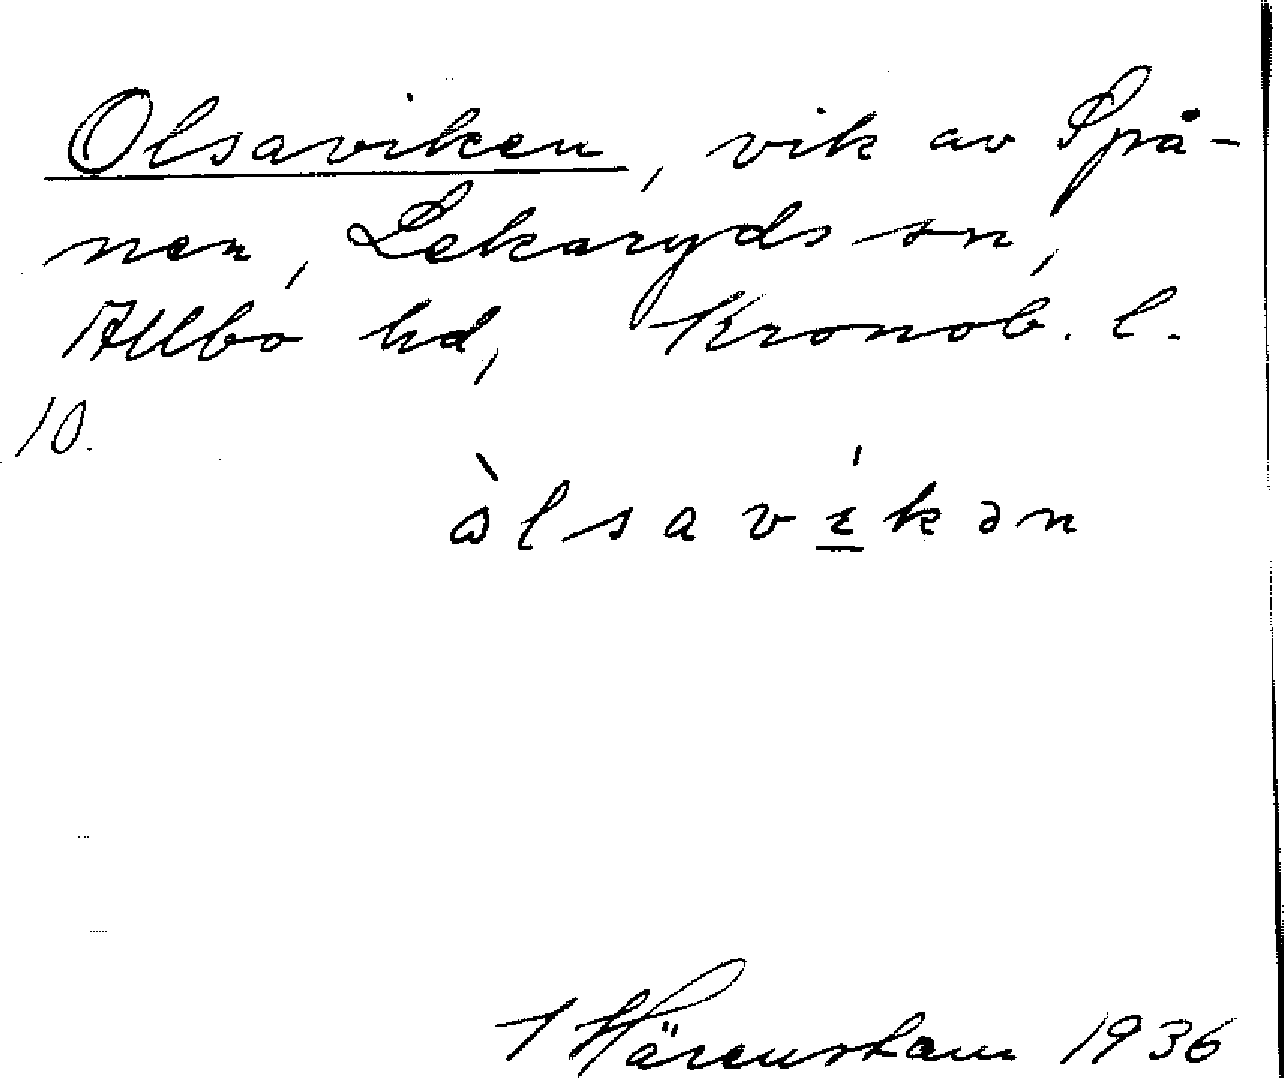 Olsaviken, vik av Spå-
nen, Lekaryds sn,
Allbo hd, Kronob. l.
10.
ɷ̀lsavíkən
1936